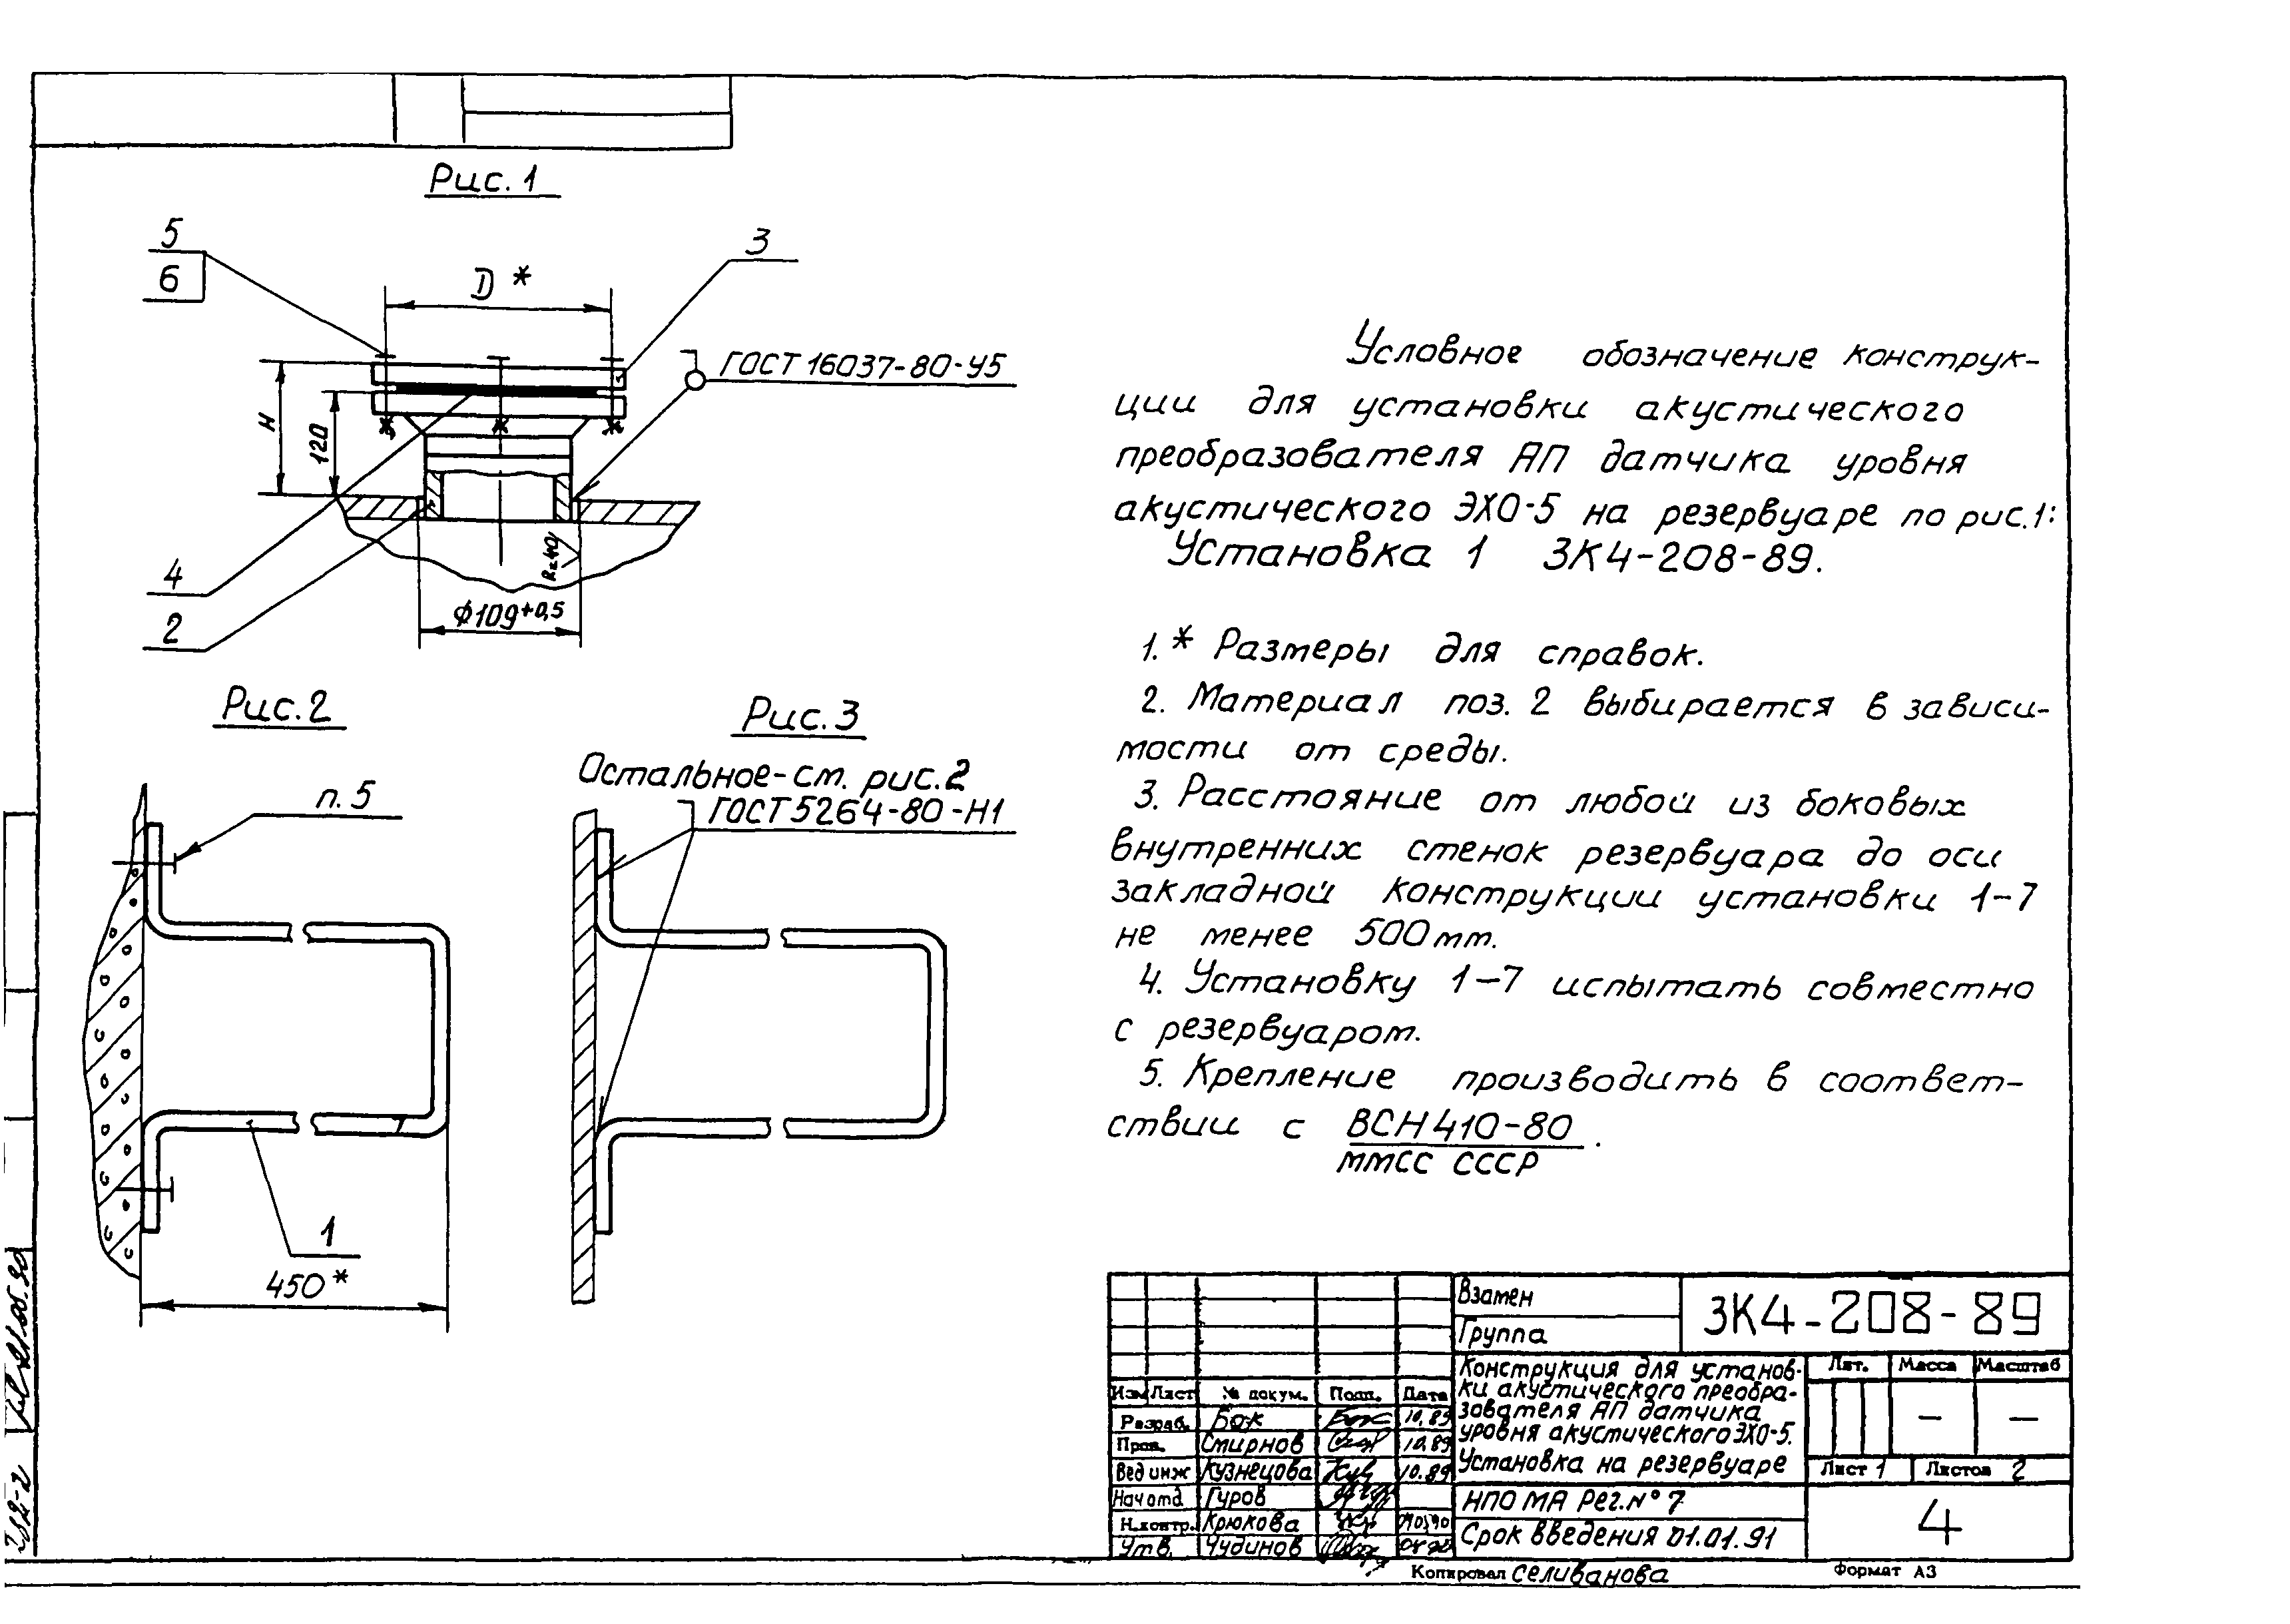 Рис. 1
5
6
3
D *
ГОСТ 16037-80-У5
H
120
Rz 40
4
2
ф109+0,5
Условное обозначение конструк-
ции для установки акустического
преобразователя АП датчика уровня
акустического ЭХО-5 на резервуаре по рис.1:
Установка 1 ЗК4-208-89.
1.* Размеры для справок.
2. Материал поз. 2 выбирается в зависи-
мости от среды.
3. Расстояние от любой из боковых
внутренних стенок резервуара до оси
закладной конструкции установки 1-7
не менее 500мм.
4. Установку 1-7 испытать совместно
с резервуаром.
5. Крепление производить в соответ-
ствии с ВСН 410-80 .
ММСС СССР
Рис. 2
п. 5
1
450*
Рис. 3
Остальное-см. рис. 2
ГОСТ 5264-80-Н1
Взамен
Группа
ЗК4-208-89
Конструкция для установ-
ки акустического преобра-
зователя АП датчика
уровня акустического ЭХО-5.
Установка на резервуаре
Лит. Масса Масштаб
— —
Лист 1 Листов 2
НПО МА Рег.№ 7
Срок введения 01.01.91
4
Изм Лист № докум. Подп. Дата
Разраб. Бок 10.89
Пров. Смирнов 10.89
Вед инж Кузнецова 10.89
Нач отд Гуров
Н.контр. Крюкова
Утв. Чудинов
Копировал Селиванова
Формат А3